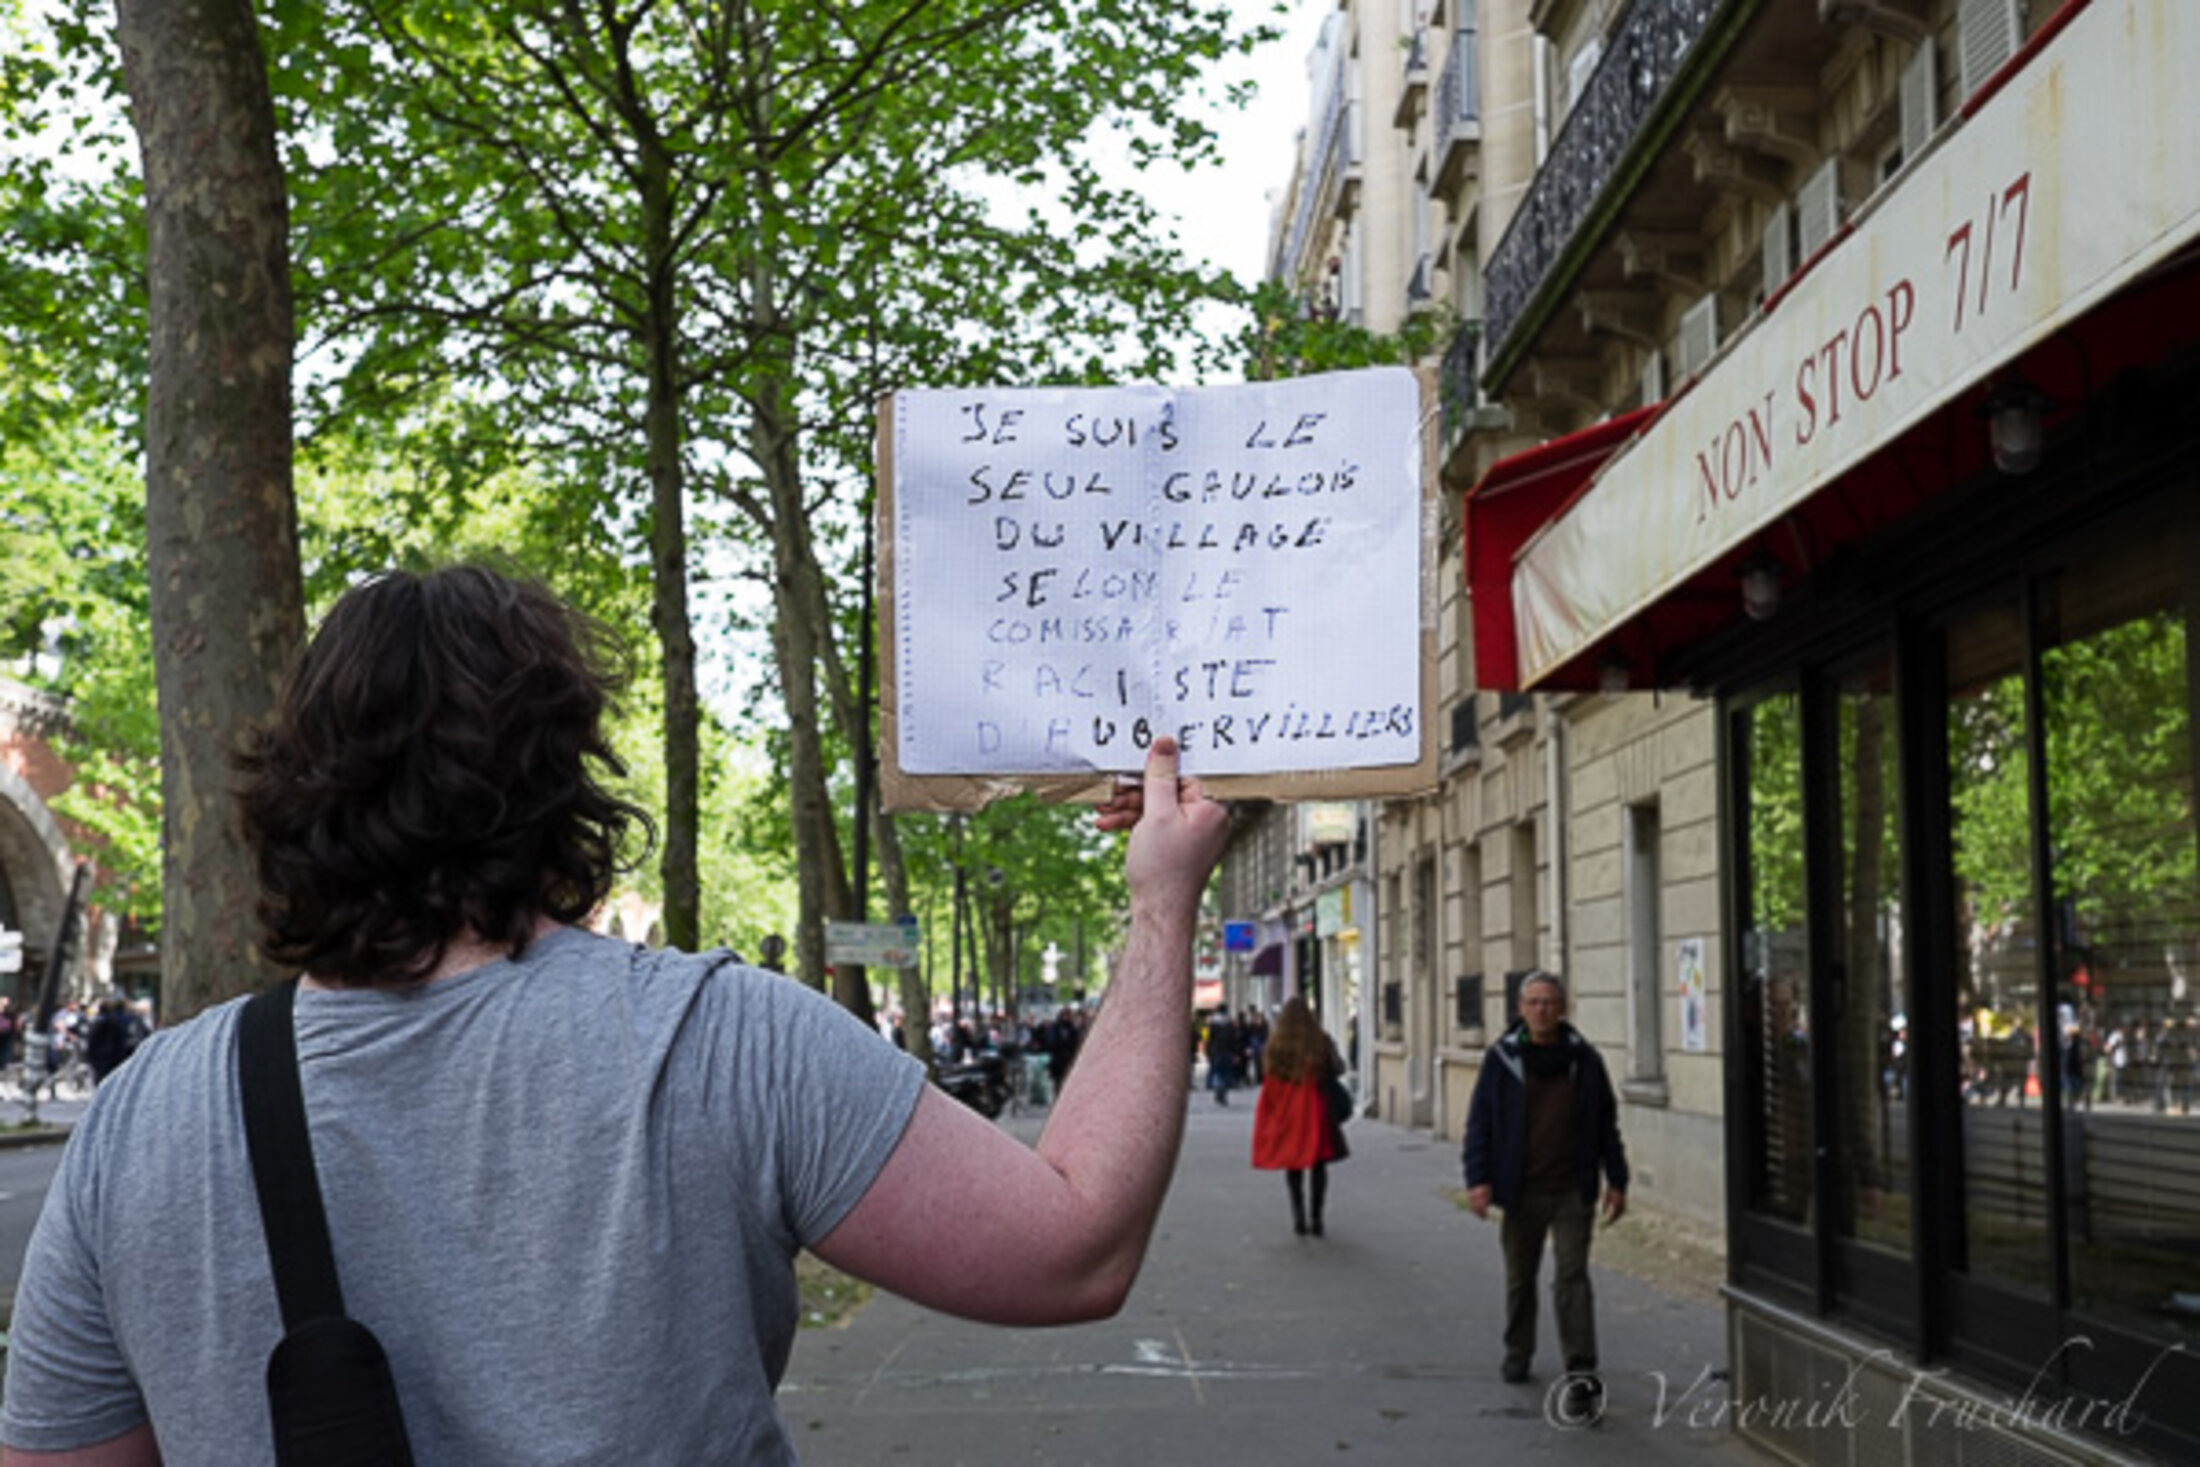 JE SUIS LE
SEUL GAULOIS
DU VILLAGE
SELON LE
COMISSARIAT
RACISTE
D'AUBERVILLIERS
NON STOP 7/7
© Veronik Fruchard